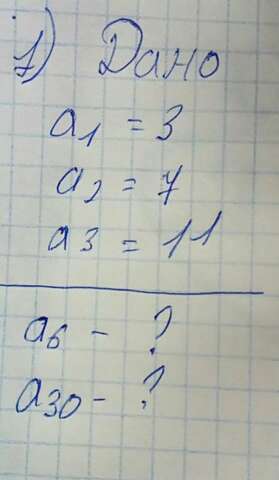 1) Дано
a1 = 3
a2 = 7
a3 = 11
a6 - ?
a30 - ?